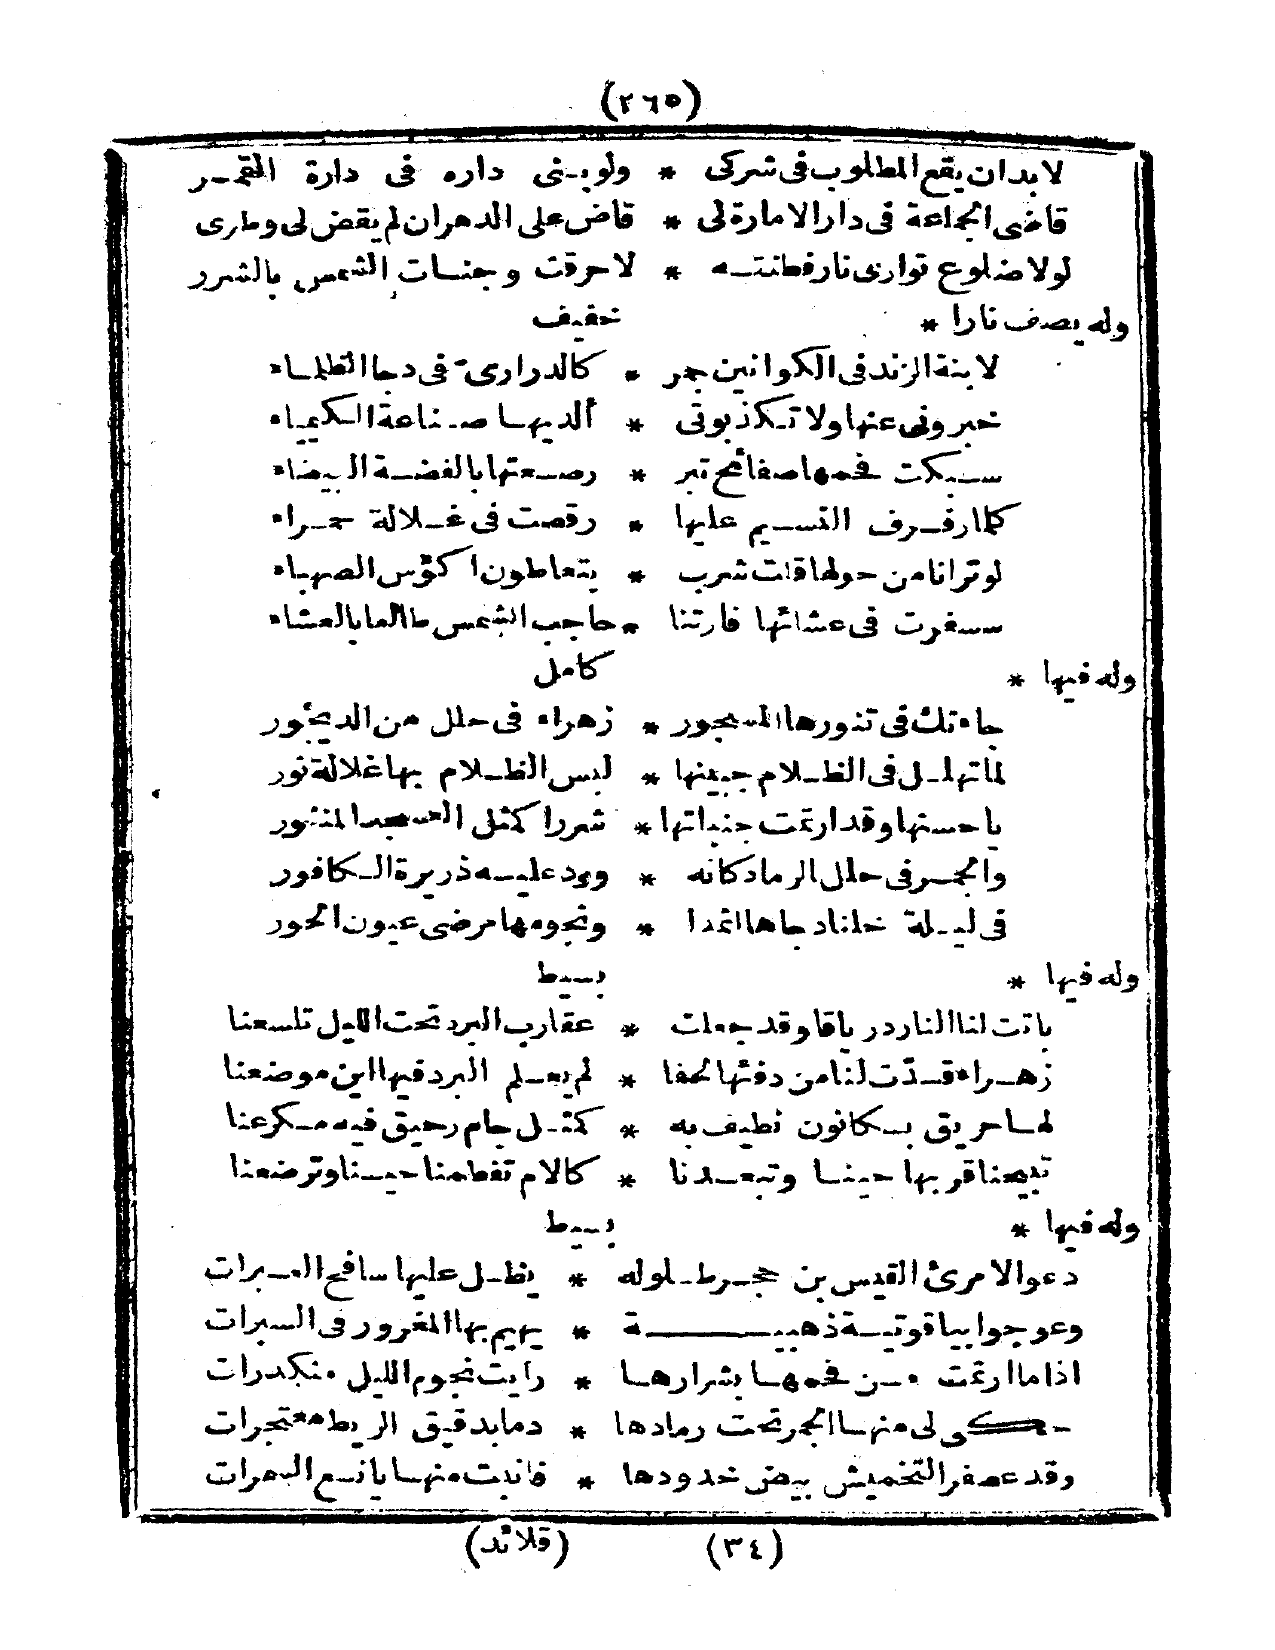 (٢٦٥)
لابد ان يقع المطلوب فى شركى * ولو بنى داره فى دارة القمر
قاضى الجماعة فى دار الامارة لى * قاض على الدهر ان لم يقض لى وطرى
لولا ضلوع توارى نار فطنته * لاحرقت وجنات الشمس بالشرر
وله يصف نارا * خفيف
لابنة الزند فى الكوانين جمر * كالدرارىّ فى دجا الظلماء
خبرونى عنها ولا تكذبونى * ألديها صناعة الكيمياء
سبكت فحمها صفائح تبر * رصعتها بالفضة البيضاء
كلما رفرف النسيم عليها * رقصت فى غلالة حمراء
لو ترانا من حولها قلت شرب * يتعاطون اكؤس الصهباء
سفرت فى عشائها فارتنا * حاجب الشمس طالعا بالعشاء
وله فيها * كامل
جاءتك فى تنورها المسجور * زهراء فى حلل من الديجور
لما تهلل فى الظلام جبينها * لبس الظلام بها غلالة نور
يا حسنها وقد ارتمت جنباتها * شررا كمثل العسجد المنثور
والجمر فى حلل الرماد كانه * ورد عليه ذريرة الكافور
فى ليلة خلنا دجاها اثمدا * ونجومها مرضى عيون الحور
وله فيها * بسيط
باتت لنا النار درياقا وقد جعلت * عقارب البرد تحت الليل تلسعنا
زهراء قدّت لنا من دفئها لحفا * لم يعلم البرد فيها اين موضعنا
لها حريق بكانون نطيف به * كمثل جام رحيق فيه مكرعنا
تبيحنا قربها حينا وتبعدنا * كالام تفطمنا حينا وترضعنا
وله فيها * بسيط
دعوا لامرئ القيس بن حجر طلوله * يظل عليها سافح العبرات
وعوجوا بياقوتية ذهبية * يهيم بها المقرور فى السبرات
اذا ما ارتمت من فحمها بشرارها * رايت نجوم الليل منكدرات
حكى لى منها الجمر تحت رمادها * دما بدقيق الريط معتجرات
وقد عصفر التخميش بيض خدودها * فانبت منها يانع الثمرات
(٣٤) (قلائد)